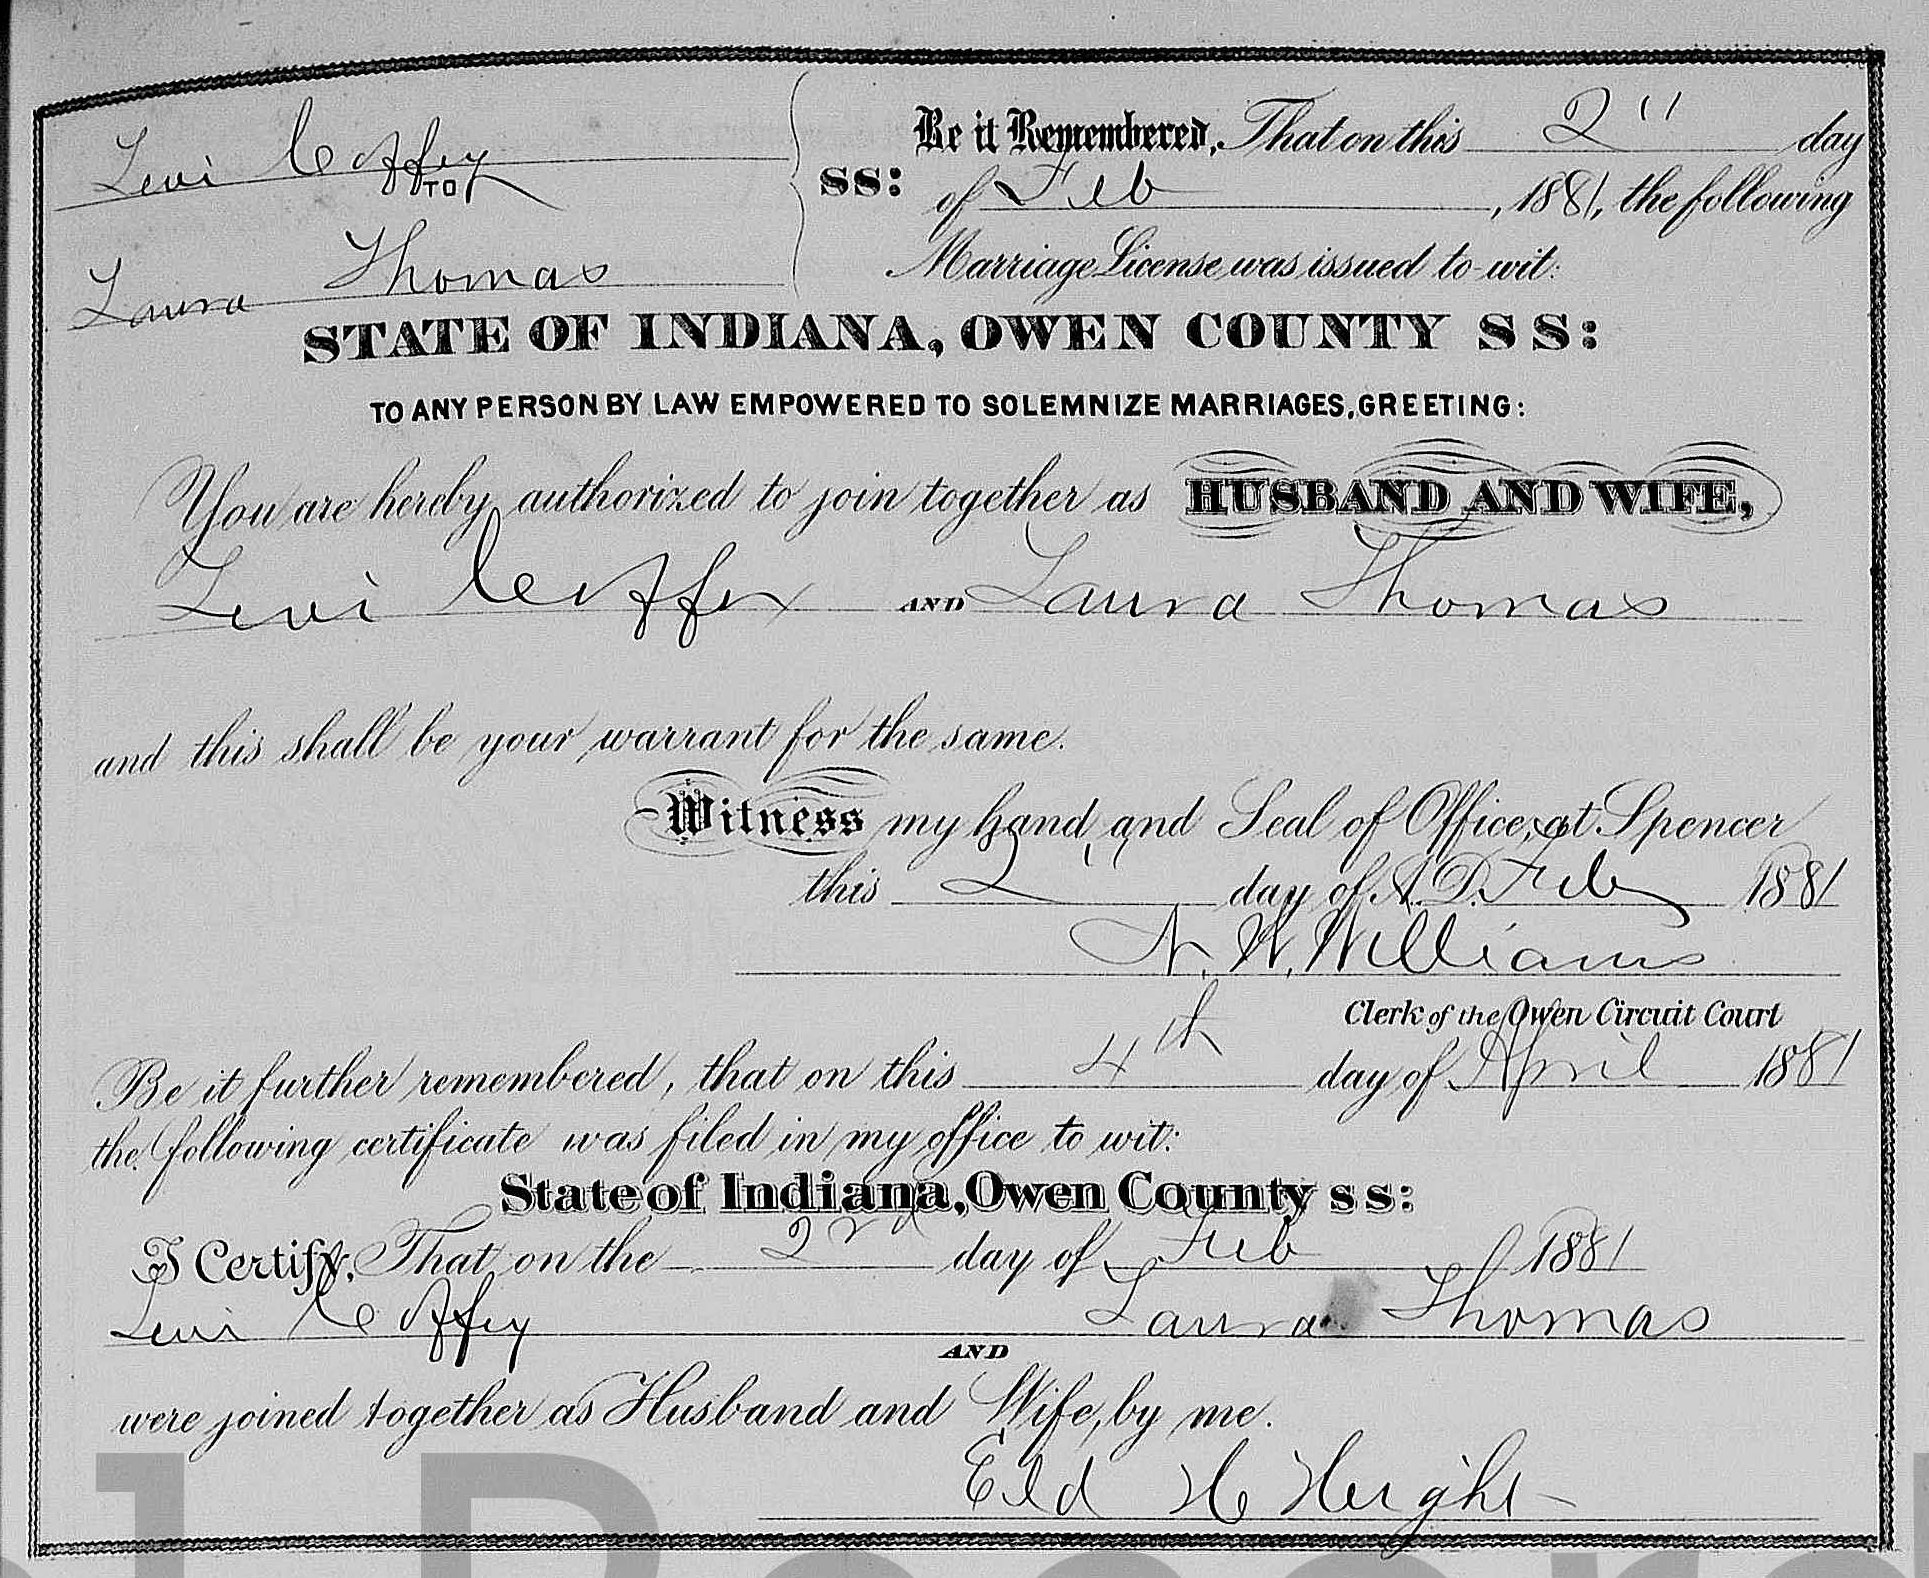 Levi Coffey
TO
Laura Thomas
SS:
Be it Remembered, That on this 2" day
of Feb, 1881, the following
Marriage License was issued to wit:
STATE OF INDIANA, OWEN COUNTY SS:
TO ANY PERSON BY LAW EMPOWERED TO SOLEMNIZE MARRIAGES, GREETING:
You are hereby authorized to join together as HUSBAND AND WIFE,
Levi Coffey AND Laura Thomas
and this shall be your warrant for the same.
Witness my hand, and Seal of Office, at Spencer
this 2" day of A.D. Feby 1881
N. W. Williams
Clerk of the Owen Circuit Court
Be it further remembered, that on this 4th day of April 1881
the following certificate was filed in my office to wit:
State of Indiana, Owen County ss:
I Certify, That on the 2nd day of Feb 1881
Levi Coffey AND Laura Thomas
were joined together as Husband and Wife, by me.
Eld H Height